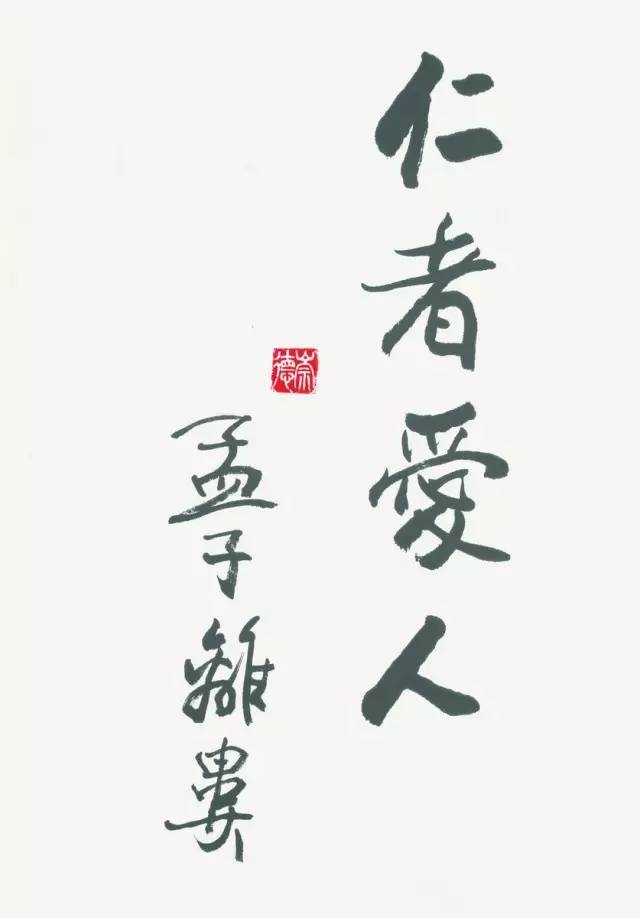 仁者愛人
崇德
孟子離婁